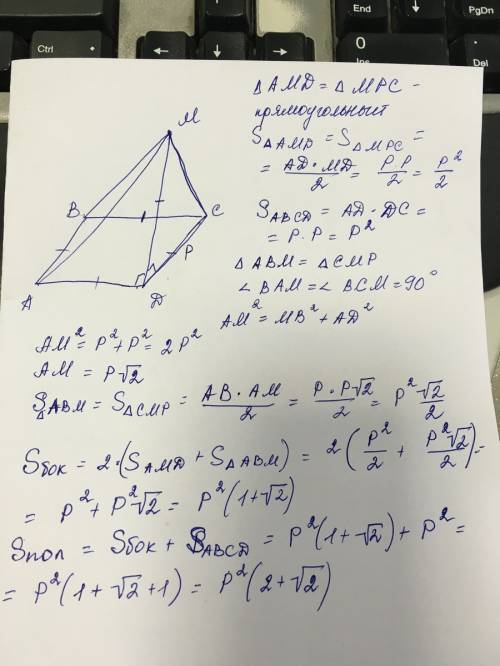 End
PgDn
Ctrl
0
Ins
Del
△AMD = △MPC -
прямоугольный
S△AMD = S△MPC =
= AD · MD / 2 = P · P / 2 = P² / 2
SABCD = AD · DC =
= P · P = P²
△ABM = △CMP
∠BAM = ∠BCM = 90°
AM² = MB² + AD²
M
B
C
P
A
D
AM² = P² + P² = 2P²
AM = P√2
S△ABM = S△CMP = AB · AM / 2 = P · P√2 / 2 = P² √2 / 2
Sбок = 2 · (SAMD + S△ABM) = 2 (P² / 2 + P²√2 / 2) =
= P² + P²√2 = P² (1 + √2)
Sпол = Sбок + SABCD = P² (1 + √2) + P² =
= P² (1 + √2 + 1) = P² (2 + √2)